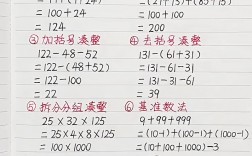 =100+24
=124
=100+100
=200
③加括号凑整
122-48-52
=122-(48+52)
=122-100
=22
④去括号凑整
131-(61+31)
=131-61-31
=131-31-61
=39
⑤拆分分组凑整
25×32×125
=25×4×8×125
=100×1000
⑥基准数法
9+99+999
=(10-1)+(100-1)+(1000-1)
=10+100+1000-3